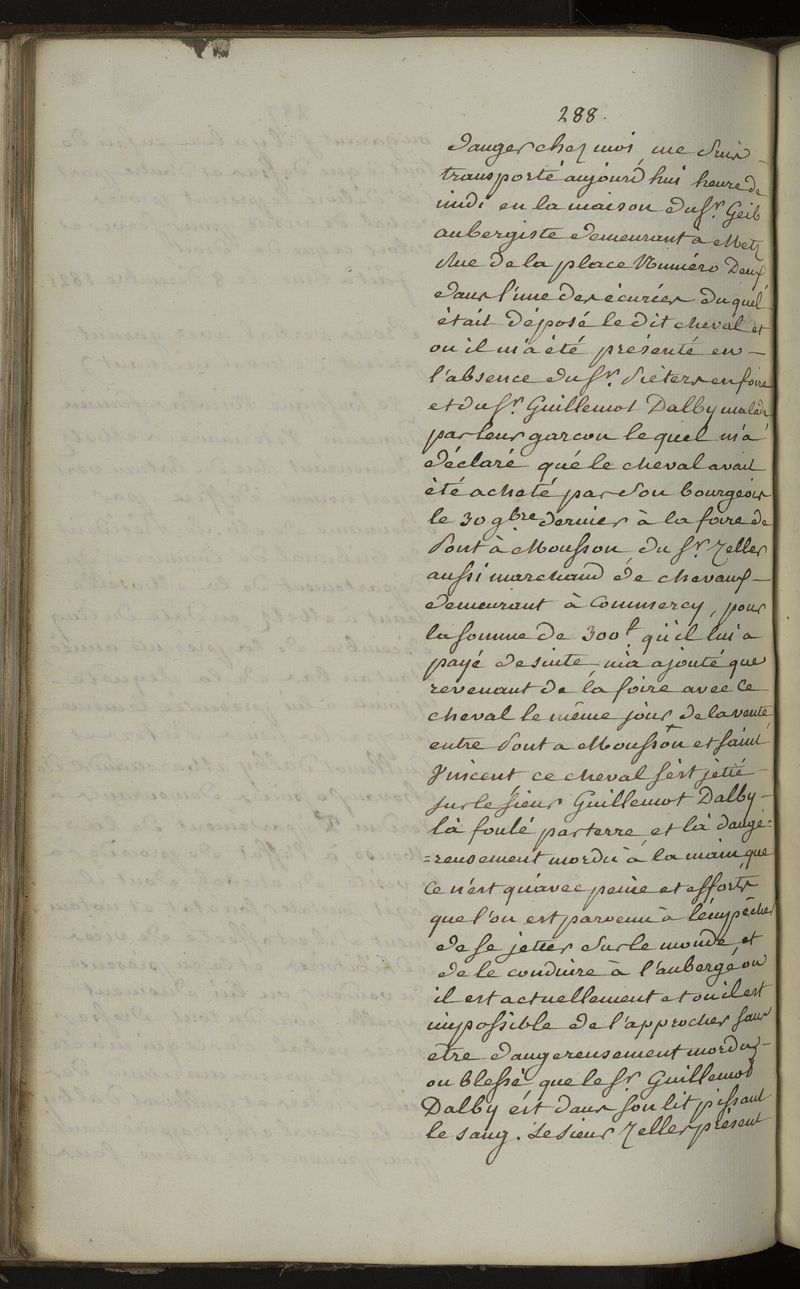 288.
danger chez moi, me suis -
transporté aujourd'hui heure de
midi en la maison du Sr. Geib
aubergiste demeurant a Metz
Rue de la place Numéro Deux
dans l'une des écuries duquel
était déposé le dit cheval et
ou il m'a été présenté en -
l'absence du Sr. Pieters en foire
et du Sr. Guillemot Dalby malade
par leur garcon le quel m'a
déclaré qué le cheval avait
été acheté par son bourgeois
le 30 9bre dernier à la foire de
Pont à Mousson, du Sr. Zeller
aussi marchand de chevaux -
demeurant à Commercy, pour
la somme de 300f. qu'il lui a
payé desuite, m'a ajouté que
revenant de la foire avec ce
cheval le même jour de la vente
entre Pont a Mousson et saint
Vincent ce cheval s'est jetté
sur le sieur Guillemot Dalby -
là foulé par terre et là dangé=
=reusement mordu à la main, que
Ce n'est qu'avec peine et efforts
que l'on est parvenu à lémpêcher
de se jetter sur le monde, et
de le conduire à l'auberge, ou
il est actuellement et ou il est
impossible de l'approcher sans
être dangereusement mordu, -
ou blessé que le Sr Guillemot
Dalby ést dans son lit pissant
le sang. Le sieur Zeller présent